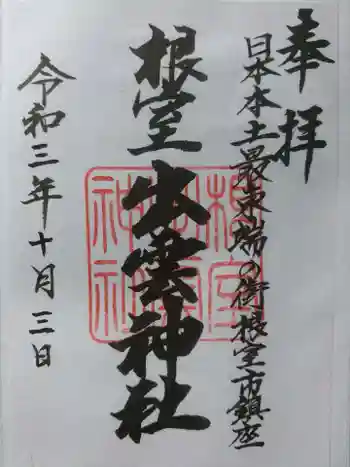 奉拝
日本本土最東端の街根室市鎮座
根室出雲神社
令和三年十月三日